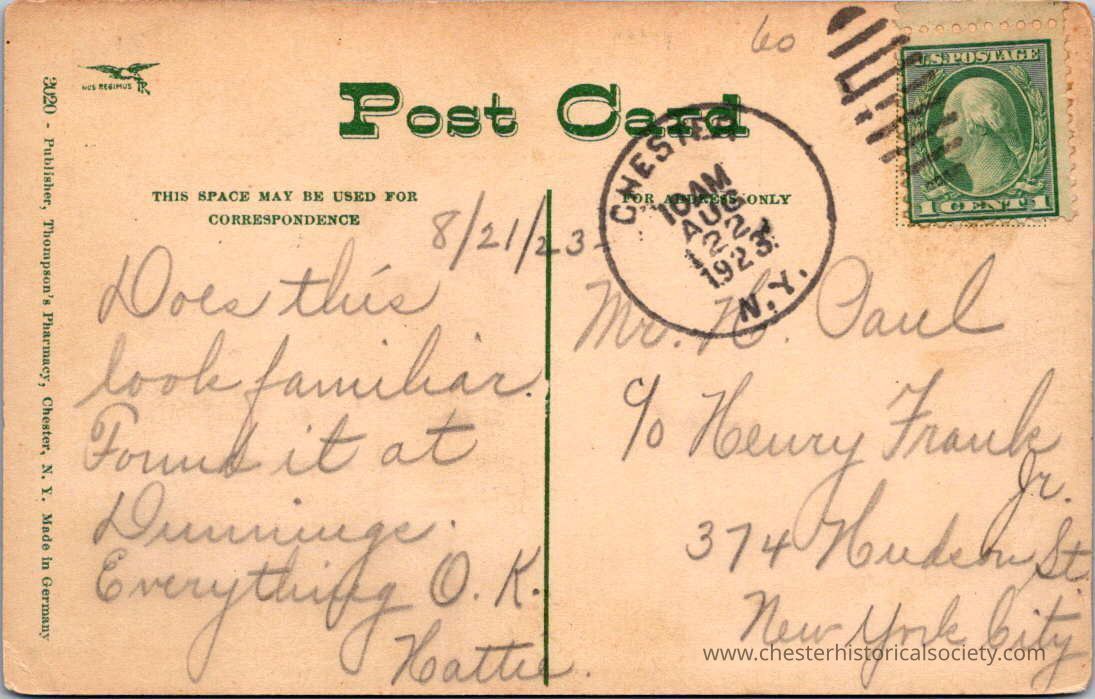 60
NOS REGIMUS
Post Card
U.S. POSTAGE
1 CENT 1
CHESTER
10 AM
AUG
22
1923
N.Y.
THIS SPACE MAY BE USED FOR
CORRESPONDENCE
FOR ADDRESS ONLY
8/21/23-
Does this
look familiar.
Found it at
Dunnings.
Everything O.K.
Hattie.
Mr. H. Paul
c/o Henry Frank
Jr.
374 Hudson St.
New York City
3020 - Publisher, Thompson's Pharmacy, Chester, N. Y. Made in Germany
www.chesterhistoricalsociety.com